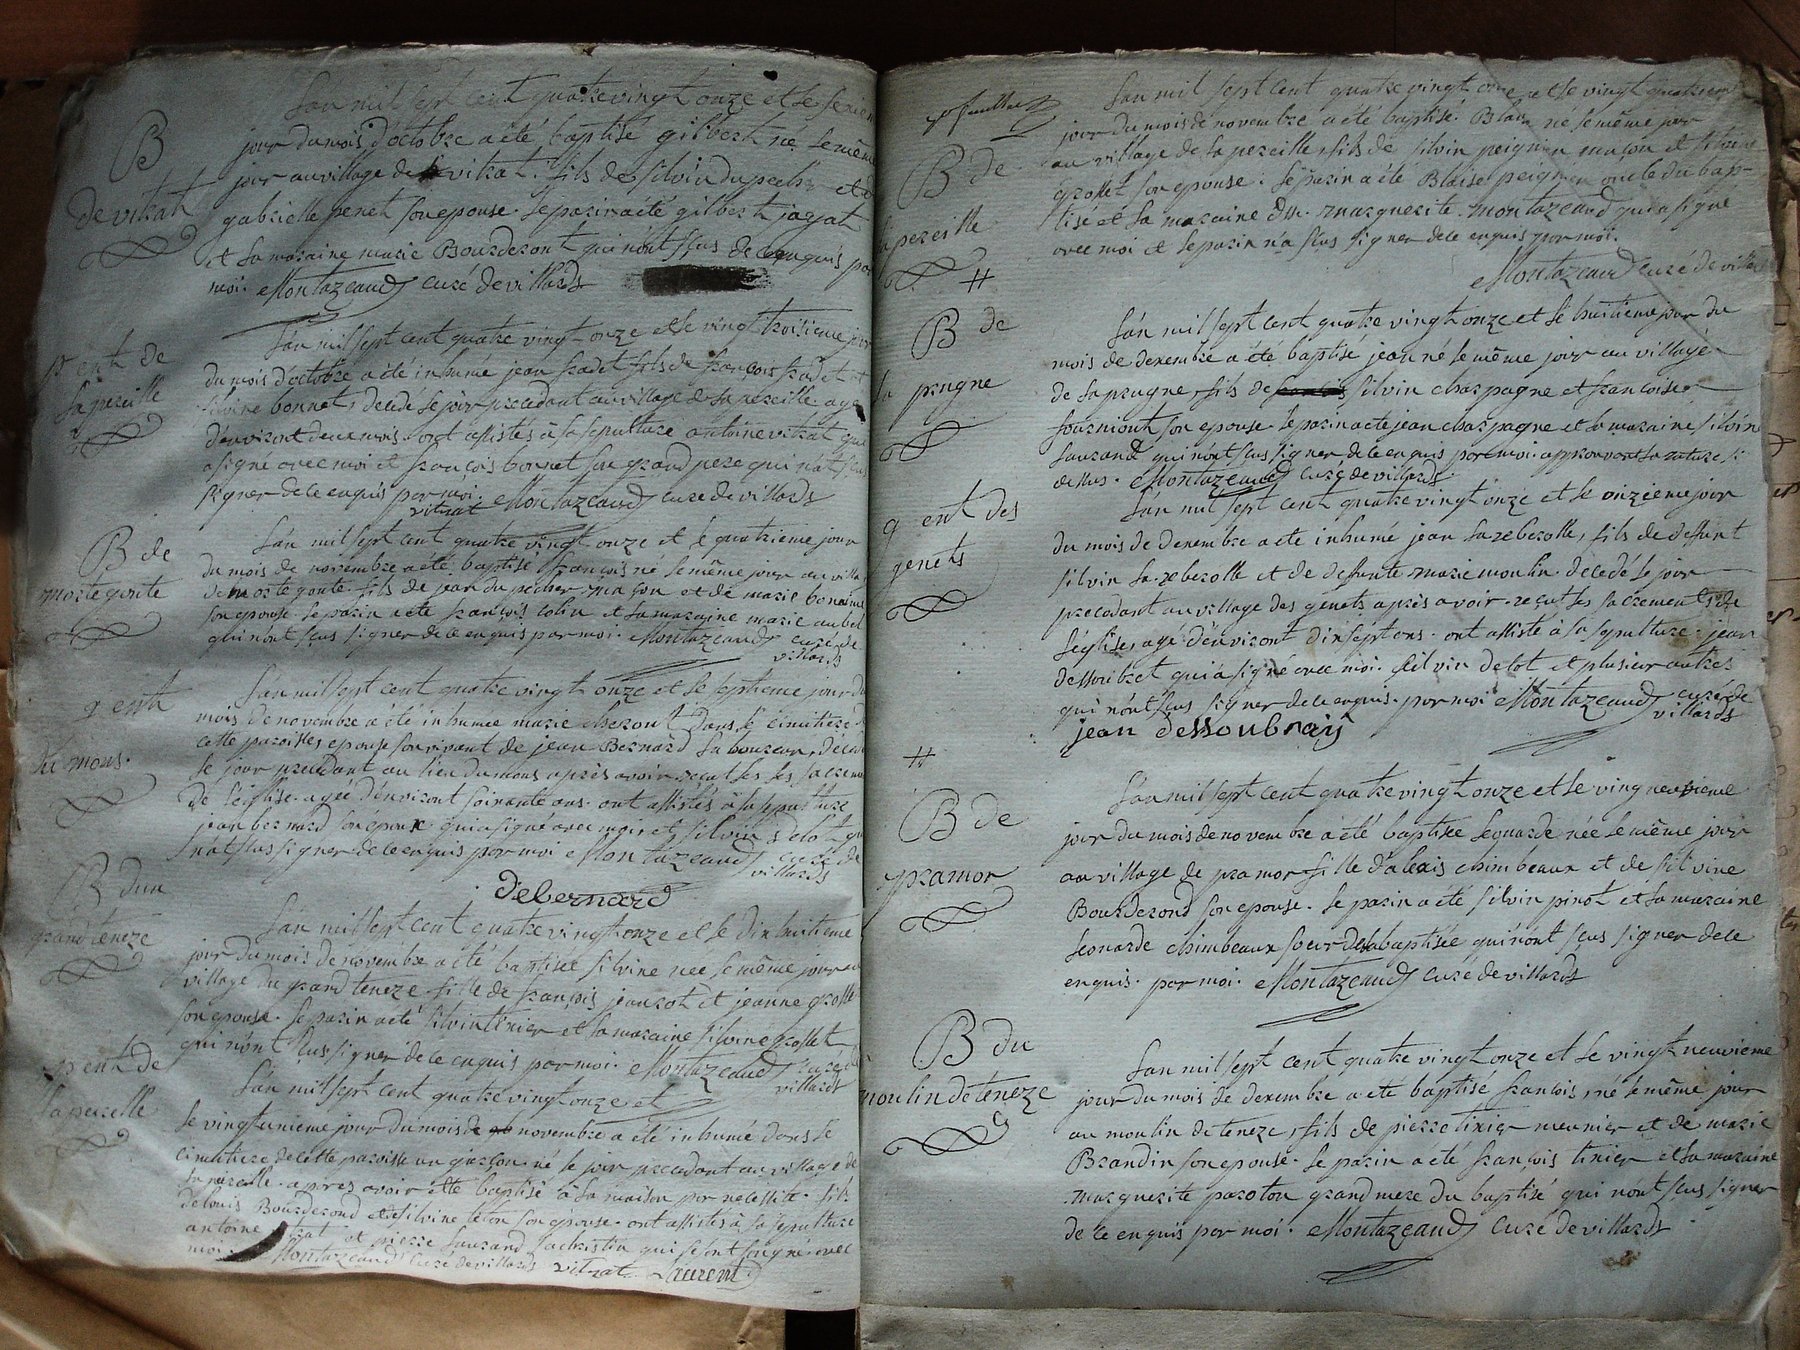 L'an mil sept cent quatre vingt onze et le
B
jour du mois d'octobre a été baptisé gilbert né le même
jour au village de vitrat. fils de silvin dupechr et de
de vitrat
gabrielle penet son epouse. le parin a été gilbert jarjat
et la maraine marie Bourderont qui n'ont sçus de ce enquis par
moi. Montazeaud curé de villards
L'an mil sept cent quatre vingt onze et le vingt troisieme jour
ent de
du mois d'octobre a été inhumé jean fradet fils de françois fradet et
la pereille
silvine bonnet, decedé le jour precedant au village de la pereille agé
d'environt deux mois. ont assistés à sa sepulture antoine vitrat qui
a signé avec moi et françois bonnet son grand pere qui n'a sçus
signer de ce enquis par moi. Montazeaud curé de villards
vitrat
L'an mil sept cent quatre vingt onze et le quatrieme jour
B de
du mois de novembre a été baptisé françois né le même jour au villa
morte goute
de morte goute. fils de jean du pecher maçon et de marie bonnaime
son epouse. le parin a été françois colin et la maraine marie aubel
qui n'ont sçus signer de ce enquis par moi. Montazeaud curé de
villards
L'an mil sept cent quatre vingt onze et le septieme jour du
9 ent
mois de novembre a été inhumée marie cheront dans le cimitiere de
cette paroisse, epouse son vivant de jean Bernard laboureur, decedé
du mons.
le jour precedant au lieu du mons après avoir reçut les sacremen
de l'église. agée d'environt soixante ans. ont assistés à sa sepulture
jean bernard son epoux qui a signé avec moi et silvin delot qui
n'at sçus signer de ce enquis par moi Montazeaud curé de
villards
debernard
B du
L'an mil sept cent quatre vingt onze et le dix huitieme
grand teneze
jour du mois de novembre a été baptisée silvine née le même jour au
village du grand teneze. fille de françois jeanrot et jeanne grollet
son epouse. le parin a été silvin tinier et la maraine silvine grollet
qui n'ont sçus signer de ce enquis par moi. Montazeaud curé de
villards
ent de
L'an mil sept cent quatre vingt onze et
la pereille
le vingt unieme jour du mois de novembre a été inhumé dans le
cimitiere de cette paroisse un garçon né le jour precedant au village de
la pereille. apres avoir été baptisé à la maison par necessité. fils
de louis Bourderond et de silvine leton son épouse. ont assistés à la sepulture
antoine vitrat et pierre laurand sacristin qui se sont signé avec
moi. Montazeaud curé de villards vitrat Laurent
L'an mil sept cent quatre vingt onze et le vingt quatrieme
jour du mois de novembre a été baptisé Blaise né le même jour
B de
au village de la pereille, fils de silvin peignen maçon et silvine
la pereille
grollet son epouse. le parin a été Blaise peignen oncle du bap-
tisé et la maraine dlle. marguerite montazeaud qui a signé
avec moi et le parin n'a sçus signer de ce enquis par moi.
#
Montazeaud curé de villards
B de
L'an mil sept cent quatre vingt onze et le huitieme jour du
mois de dexembre a été baptisé jean né le même jour au village
la prugne
de la prugne, fils de silvin charpagne et françoise
fourniont son epouse. le parin a été jean charpagne et la maraine silvine
laurand qui n'ont sçus signer de ce enquis par moi. approuvant la rature si
dessus. Montazeaud curé de villards
9 ent des
L'an mil sept cent quatre vingt onze et le onzieme jour
genets
du mois de dexembre a été inhumé jean la reberolle, fils de deffunt
silvin la reberolle et de deffunte marie moulin. decedé le jour
precedant au village des genets après avoir reçut les sacrements de
l'église, agé d'environt dix sept ans. ont assiste à sa sepulture jean
dessoubret qui a signé avec moi. silvin delot et plusieur autres
qui n'ont sçus signer de ce enquis. par moi Montazeaud curé de
villards
jean dessoubray
#
L'an mil sept cent quatre vingt onze et le vingt neuvieme
B de
jour du mois de novembre a été baptisée leonarde née le même jour
pramor
au village de pramor fille d'alexis chimbeaux et de silvine
Bourderond son epouse. le parin a été silvin pinot et la maraine
leonarde chimbeaux soeur de la baptisée qui n'ont sçus signer de ce
enquis. par moi. Montazeaud curé de villards
B du
L'an mil sept cent quatre vingt onze et le vingt neuvieme
moulin de teneze
jour du mois de dexembre a été baptisé françois, né le même jour
au moulin de teneze, fils de pierre tinier meunier et de marie
Brandin son epouse. le parin a été françois tinier et la maraine
marguerite paroton grand mere du baptisé qui n'ont sçus signer
de ce enquis par moi. Montazeaud curé de villards